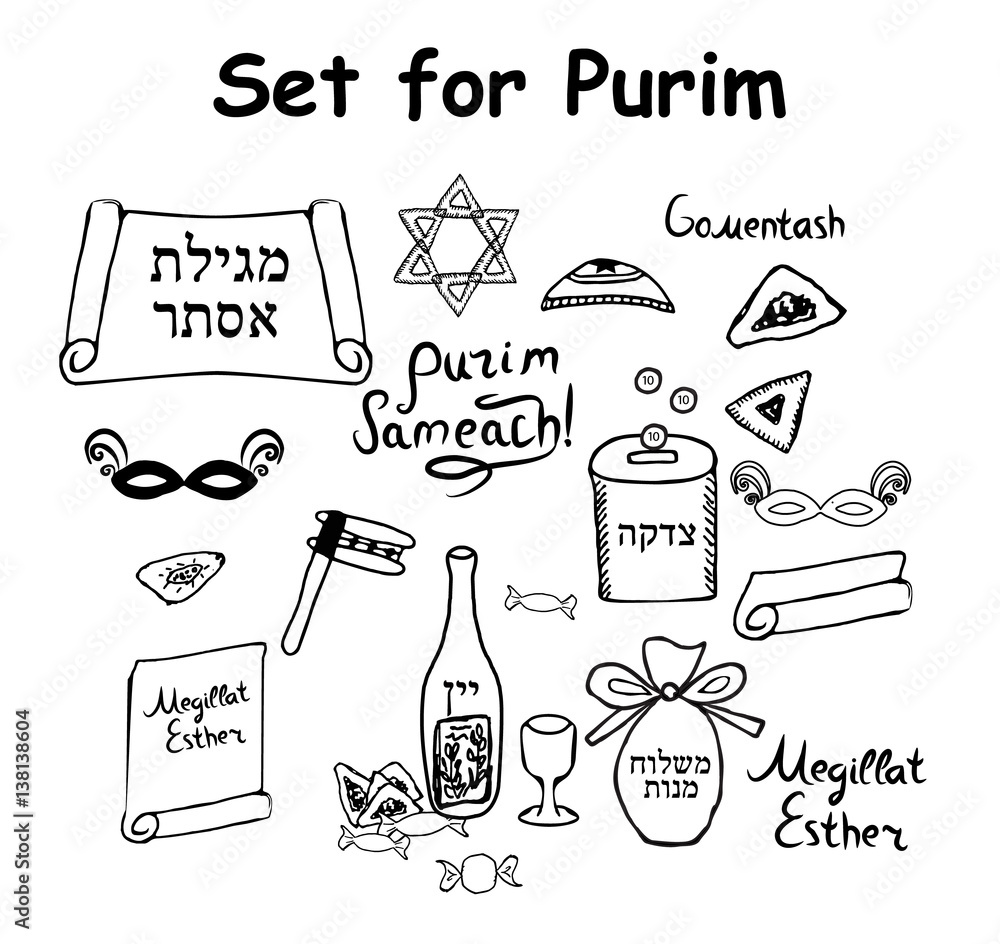 Set for Purim
Gomentash
מגילת
אסתר
Purim
Sameach!
10
10
10
צדקה
Megillat
Esther
יין
משלוח
מנות
Megillat
Esther
Adobe Stock | #138138604